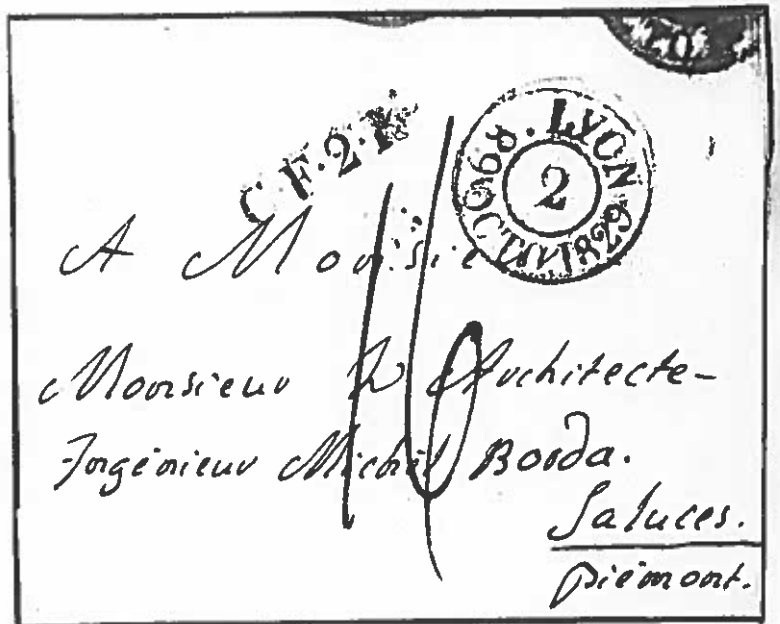 C.F.2.R
68. LYON
2
1829
A Monsie
16
Monsieur L'Architecte-
Ingénieur Michel Borda.
Saluces.
Piémont.